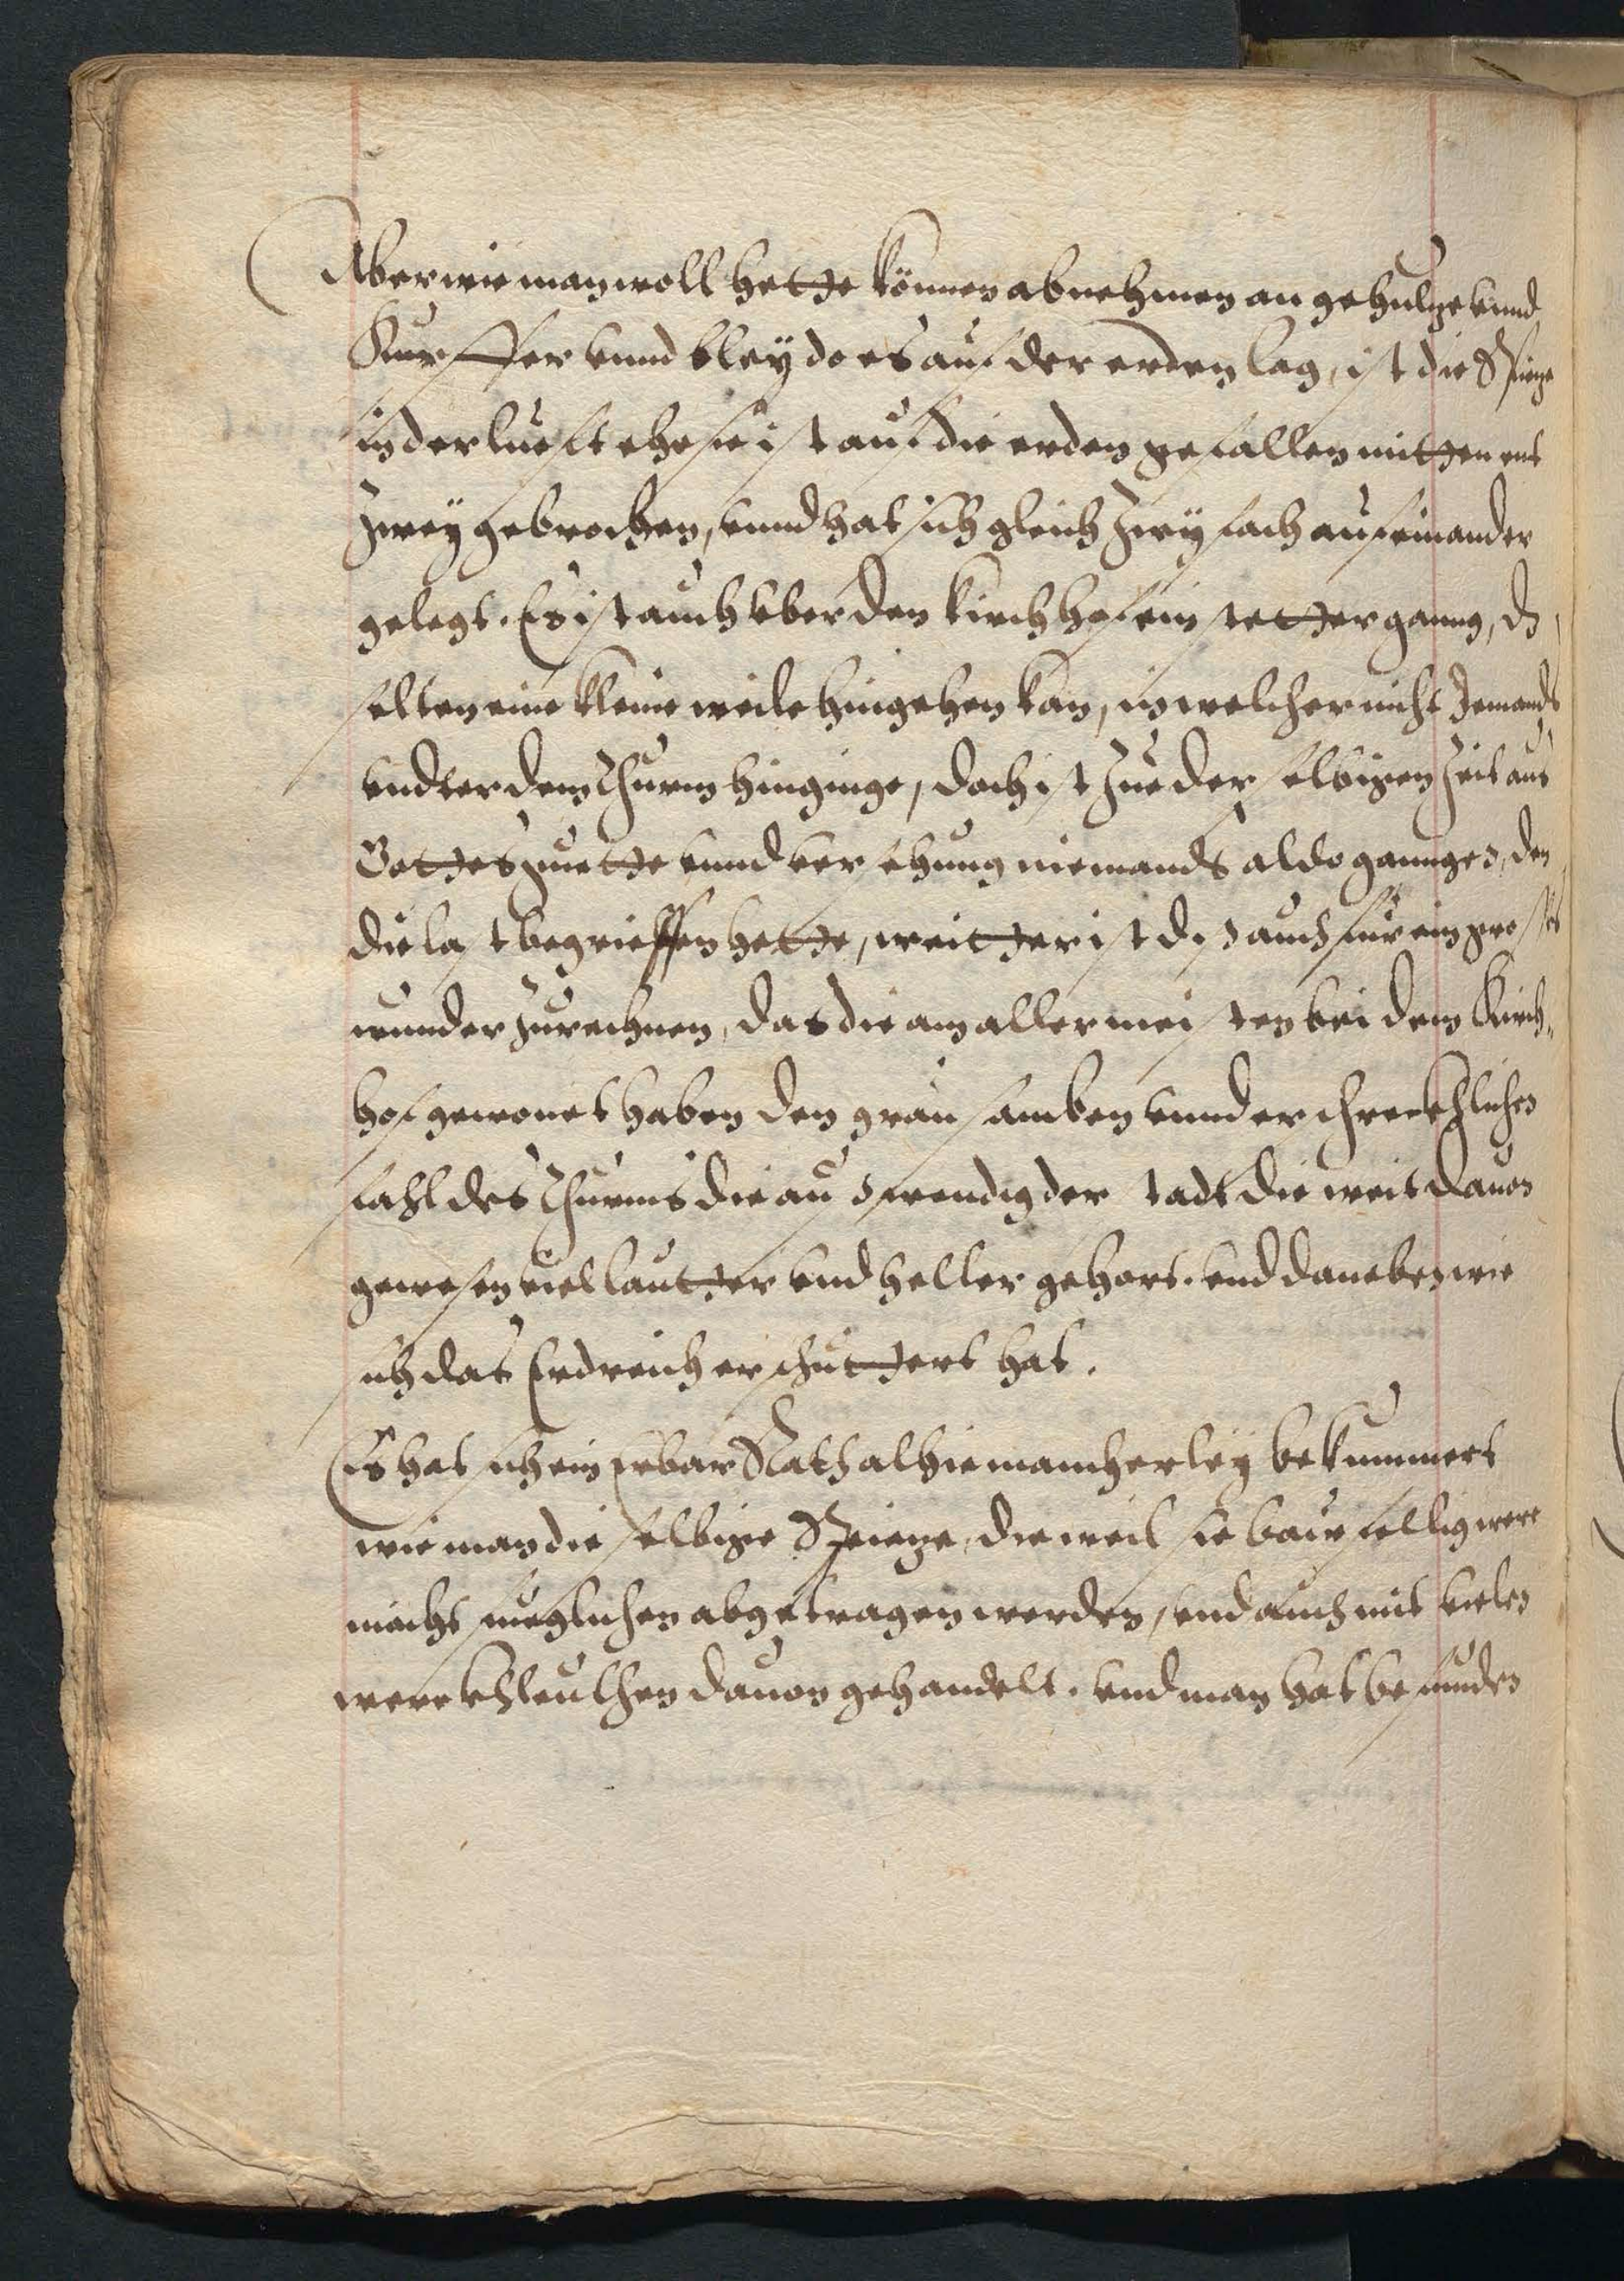 Aber wie man woll hette können abnehmen an gehultze vnnd
Kupffer vnnd bley do es auf der erden lag, ist die Spitze
in der lufft ehe sie ist auf die erden gefallen mitten ent
zwey gebrochen, vnnd hat sich gleich zwyfach auf einander
gelegt. Es ist auch vber den kirchhof ein stetter ganng, dz
selten eine kleine weile hingehen kan, in welcher nicht Jemands
vndter dem Thurm hinginge, doch ist zue der selbigen zeit aus
Gottes guette vnnd ver ehung niemands aldo ganngen, den
die last begrieffen hette, weitter ist dis auch für ein gros
wunder zurechnen, das die am allermeisten bei dem Kirch„
hof gewonet haben den grausamben vnnd erschrecklichen
fahl des Thurms die auswendig der stadt die weit dauon
gewesen viel lautter vnd heller gehort. vnd daneben wie
sich das Erdreich erschuttert hat.
Es hat sich ein Erbar Rath alhie mancherley bekummert
wie man die selbige Spietze, dieweil sie baufellig were
möcht muglichen abgetragen werden, vnd auch mit vielen
werckhleuthen dauon gehandelt. vnd man hat befunden